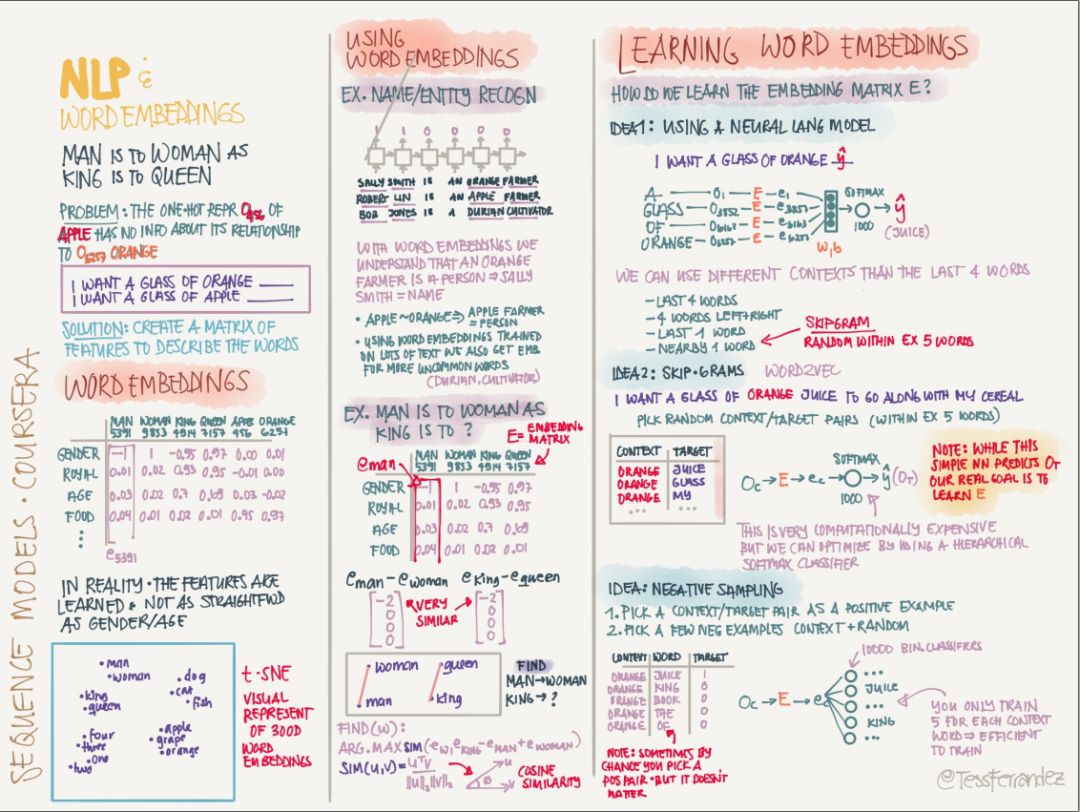 SEQUENCE MODELS · COURSERA
NLP &
WORD EMBEDDINGS
MAN IS TO WOMAN AS
KING IS TO QUEEN
PROBLEM: THE ONE-HOT REPR O456 OF
APPLE HAS NO INFO ABOUT ITS RELATIONSHIP
TO O6257 ORANGE
I WANT A GLASS OF ORANGE ____
I WANT A GLASS OF APPLE ____
SOLUTION: CREATE A MATRIX OF
FEATURES TO DESCRIBE THE WORDS
WORD EMBEDDINGS
MAN WOMAN KING QUEEN APPLE ORANGE
5391 9853 4914 7157 456 6257
GENDER -1 1 -0.95 0.97 0.00 0.01
ROYAL 0.01 0.02 0.93 0.95 -0.01 0.00
AGE 0.03 0.02 0.7 0.69 0.03 -0.02
FOOD 0.04 0.01 0.02 0.01 0.95 0.97
e5391
IN REALITY · THE FEATURES ARE
LEARNED & NOT AS STRAIGHTFWD
AS GENDER/AGE
man
woman
dog
cat
fish
king
queen
four
three
one
two
apple
grape
orange
t-SNE
VISUAL
REPRESENT
OF 300D
WORD
EMBEDDINGS
USING
WORD EMBEDDINGS
EX. NAME/ENTITY RECOGN
1 1 0 0 0 0
SALLY SMITH IS AN ORANGE FARMER
ROBERT LIN IS AN APPLE FARMER
BOB JONES IS A DURIAN CULTIVATOR
WITH WORD EMBEDDINGS WE
UNDERSTAND THAT AN ORANGE
FARMER IS A PERSON ⇒ SALLY
SMITH = NAME
• APPLE ~ ORANGE ⇒ APPLE FARMER
= PERSON
• USING WORD EMBEDDINGS TRAINED
ON LOTS OF TEXT WE ALSO GET EMB.
FOR MORE UNCOMMON WORDS
(DURIAN, CULTIVATOR)
EX. MAN IS TO WOMAN AS
KING IS TO ?
E = EMBEDDING
MATRIX
eman
MAN WOMAN KING QUEEN
5391 9853 4914 7157
GENDER -1 1 -0.95 0.97
ROYAL 0.01 0.02 0.93 0.95
AGE 0.03 0.02 0.7 0.69
FOOD 0.04 0.01 0.02 0.01
eman - ewoman eking - equeen
[-2 0 0 0] VERY SIMILAR [-2 0 0 0]
woman queen
man king
FIND
MAN → WOMAN
KING → ?
FIND(W):
ARG.MAX SIM(eW, eKING - eMAN + eWOMAN)
SIM(U,V) = UTV / ||U||2||V||2
u
Φ
v
COSINE
SIMILARITY
LEARNING WORD EMBEDDINGS
HOW DO WE LEARN THE EMBEDDING MATRIX E?
IDEA 1: USING A NEURAL LANG MODEL
I WANT A GLASS OF ORANGE ŷ
A — O1 — E — e1
GLASS — O3852 — E — e3852
OF — O6163 — E — e6163
ORANGE — O6257 — E — e6257
W,b
SOFTMAX
1000
ŷ
(JUICE)
WE CAN USE DIFFERENT CONTEXTS THAN THE LAST 4 WORDS
- LAST 4 WORDS
- 4 WORDS LEFT+RIGHT
- LAST 1 WORD
- NEARBY 1 WORD
SKIPGRAM
RANDOM WITHIN EX 5 WORDS
IDEA2: SKIP-GRAMS WORD2VEC
I WANT A GLASS OF ORANGE JUICE TO GO ALONG WITH MY CEREAL
PICK RANDOM CONTEXT/TARGET PAIRS (WITHIN EX 5 WORDS)
CONTEXT TARGET
ORANGE JUICE
ORANGE GLASS
ORANGE MY
... ...
Oc → E → ec → ŷ (OT)
SOFTMAX
1000
NOTE: WHILE THIS
SIMPLE NN PREDICTS OT
OUR REAL GOAL IS TO
LEARN E
THIS IS VERY COMPUTATIONALLY EXPENSIVE
BUT WE CAN OPTIMIZE BY USING A HIERARCHICAL
SOFTMAX CLASSIFIER
IDEA: NEGATIVE SAMPLING
1. PICK A CONTEXT/TARGET PAIR AS A POSITIVE EXAMPLE
2. PICK A FEW NEG EXAMPLES CONTEXT + RANDOM
CONTEXT WORD TARGET
ORANGE JUICE 1
ORANGE KING 0
ORANGE BOOK 0
ORANGE THE 0
ORANGE OF 0
NOTE: SOMETIMES BY
CHANCE YOU PICK A
POS PAIR · BUT IT DOESN'T
MATTER
10000 BIN. CLASSIFIERS
Oc → E → ec
...
JUICE
...
KING
...
YOU ONLY TRAIN
5 FOR EACH CONTEXT
WORD ⇒ EFFICIENT
TO TRAIN
@TessFerrandez